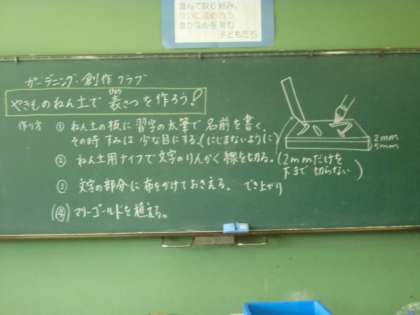 ガーデニング・創作クラブ
やきものねん土で表さつを作ろう!
作り方 ① ねん土の板に習字の太筆で名前を書く。
その時すみは少な目にする(にじまないように)
② ねん土用ナイフで文字のりんかく線を切る。(2mmだけを下まで切らない)
③ 文字の部分に布をかけておさえる。でき上がり
マリーゴールドを植える。
2mm
5mm
子どもたち